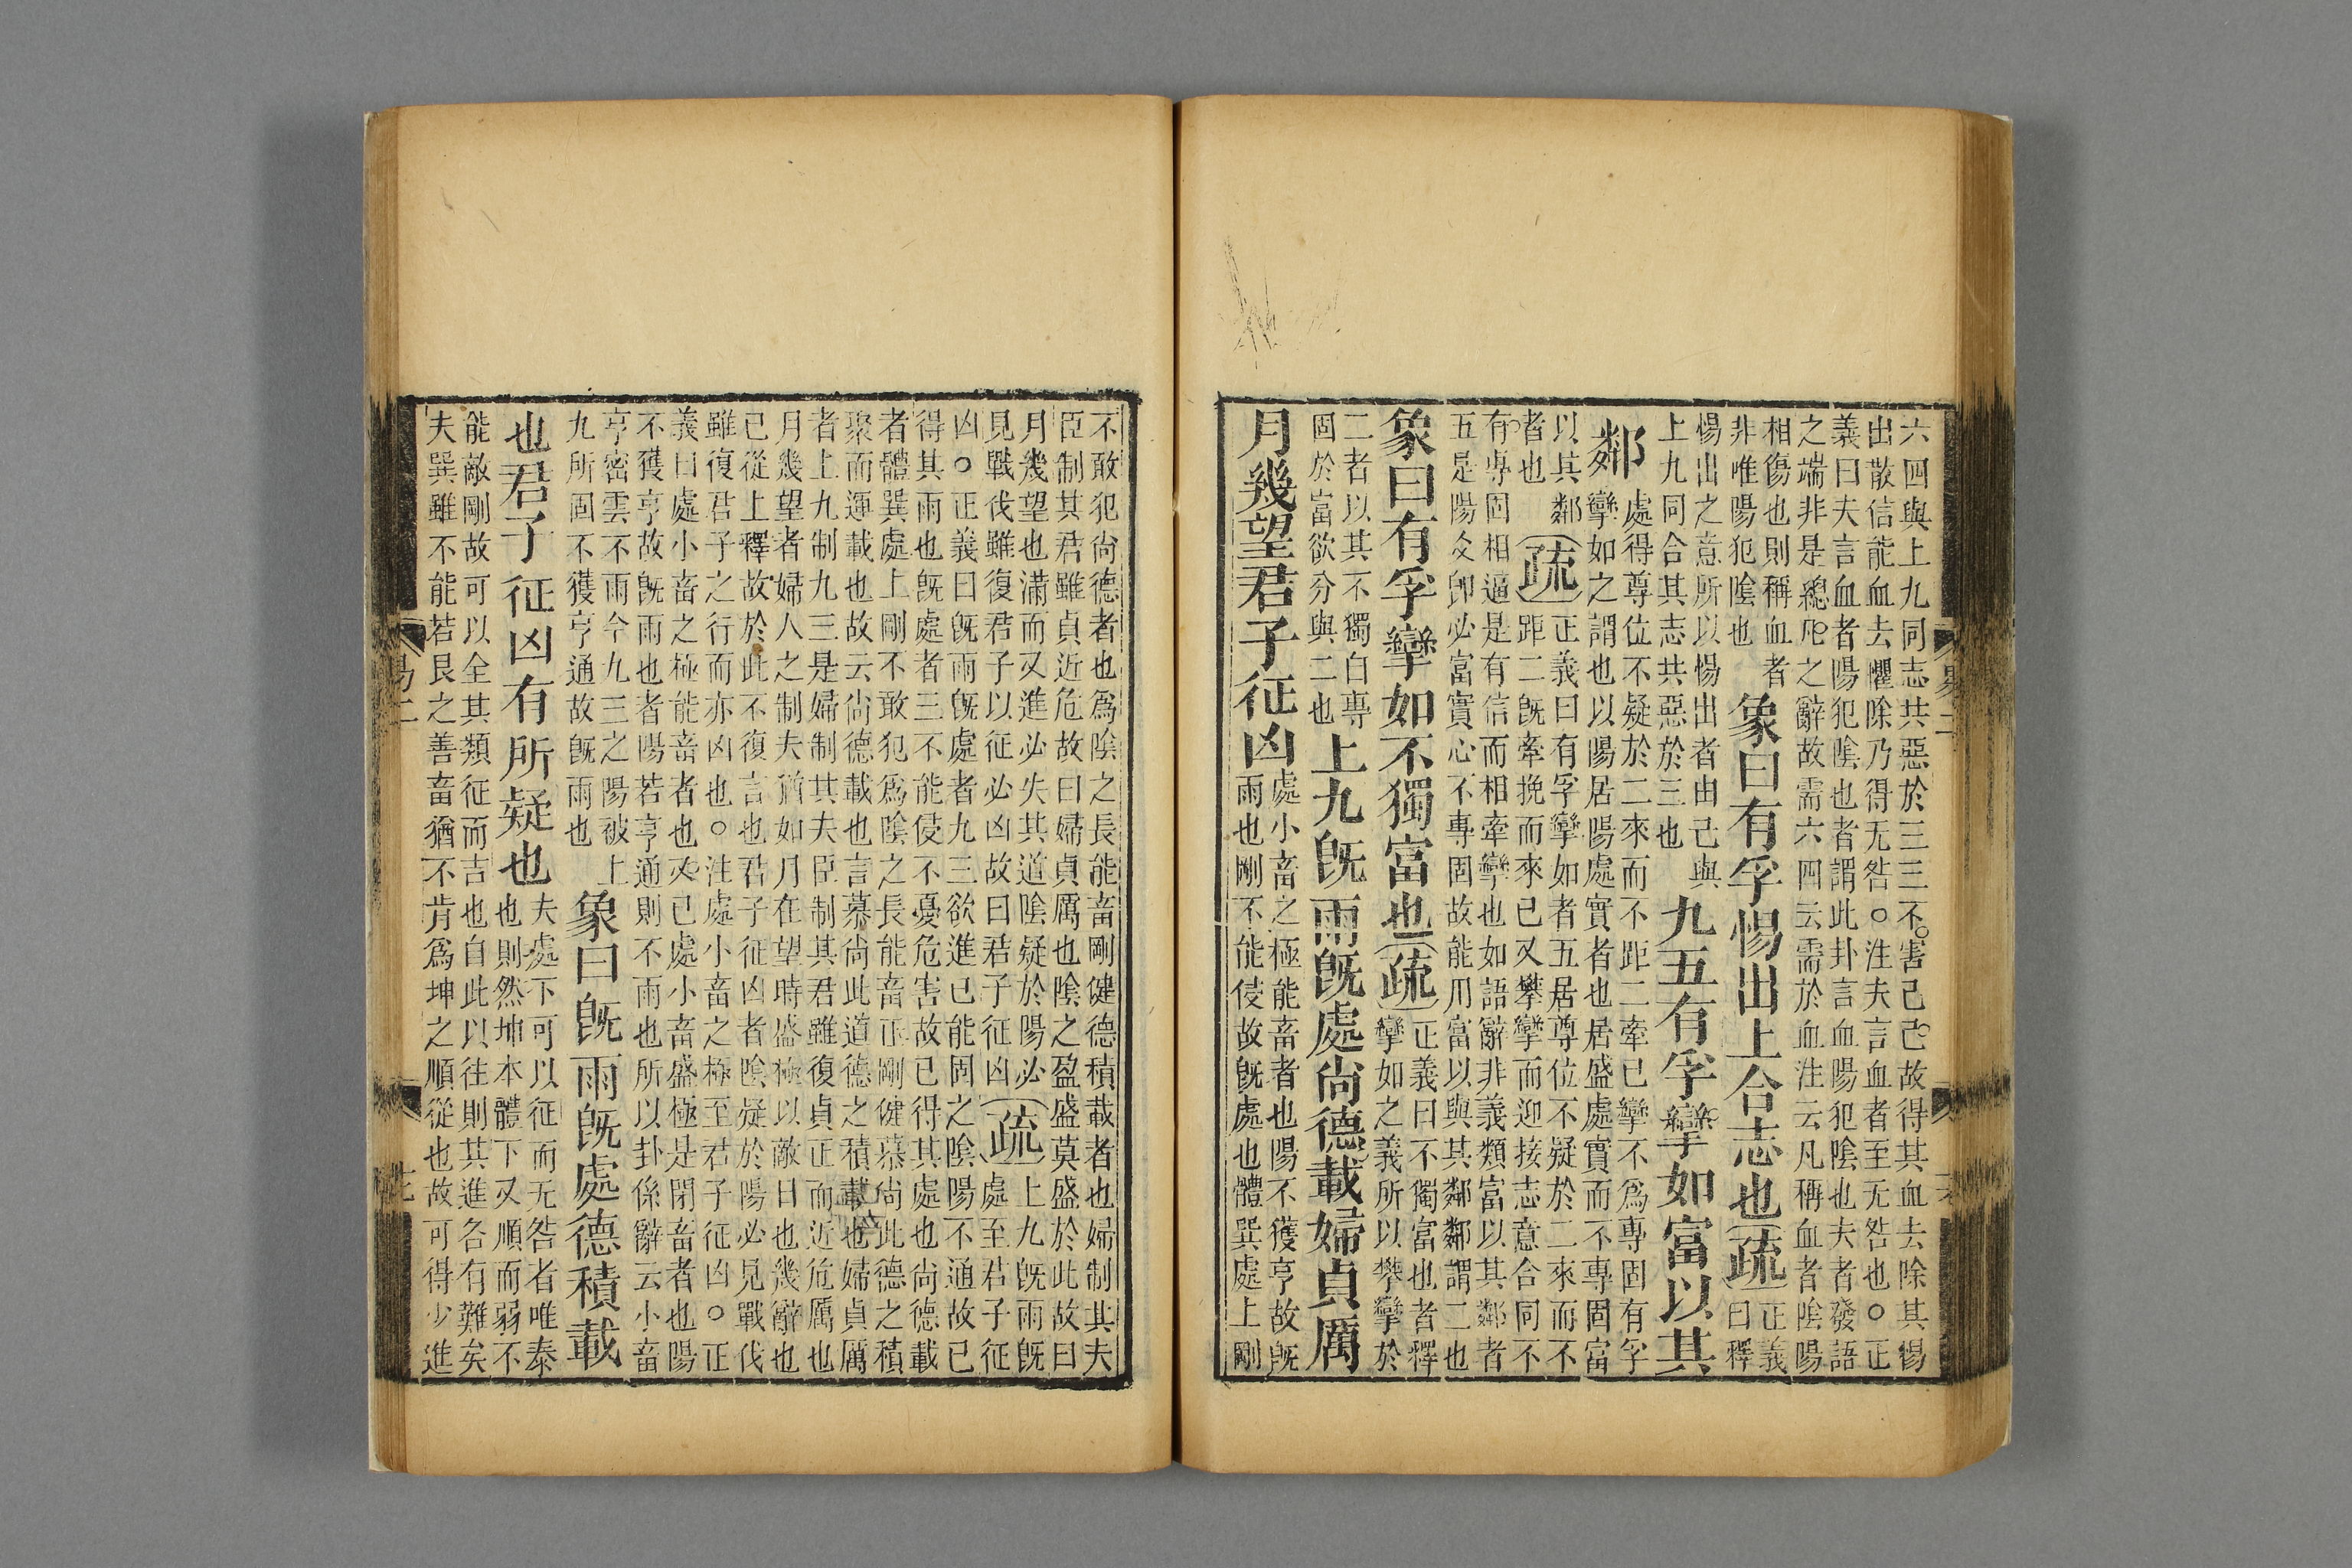 六四與上九同志共惡於三三不害己己故得其血去除其惕
出散信能血去懼除乃得无咎○注夫言血者至无咎也○正
義曰夫言血者陽犯陰也者謂此卦言血陽犯陰也夫者發語
之端非是總凡之辭故需六四云需於血注云凡稱血者陰陽
相傷也則稱血者
非唯陽犯陰也
象曰有孚惕出上合志也
疏
正義
曰釋
惕出之意所以惕出者由己與
上九同合其志共惡於三也
九五有孚攣如富以其
鄰
處得尊位不疑於二來而不距二牽已攣不爲專固有孚
攣如之謂也以陽居陽處實者也居盛處實而不專固富
以其鄰
者也
疏
正義曰有孚攣如者五居尊位不疑於二來而不
距二旣牽挽而來已又攀攣而迎接志意合同不
有專固相逼是有信而相牽攣也如語辭非義類富以其鄰者
五是陽爻卽必富實心不專固故能用富以與其鄰鄰謂二也
象曰有孚攣如不獨富也
疏
正義曰不獨富也者釋
攣如之義所以攀攣於
二者以其不獨自專
固於富欲分與二也
上九旣雨旣處尙德載婦貞厲
月幾望君子征凶
處小畜之極能畜者也陽不獲亨故旣
雨也剛不能侵故旣處也體巽處上剛
不敢犯尙德者也爲陰之長能畜剛健德積載者也婦制其夫
臣制其君雖貞近危故曰婦貞厲也陰之盈盛莫盛於此故曰
月幾望也滿而又進必失其道陰疑於陽必
見戰伐雖復君子以征必凶故曰君子征凶
疏
上九旣雨旣
處至君子征
凶○正義曰旣雨旣處者九三欲進已能固之陰陽不通故已
得其雨也旣處者三不能侵不憂危害故已得其處也尙德載
者體巽處上剛不敢犯爲陰之長能畜正剛健慕尙此德之積
聚而運載也故云尙德載也言慕尙此道德之積載也婦貞厲
者上九制九三是婦制其夫臣制其君雖復貞正而近危厲也
月幾望者婦人之制夫猶如月在望時盛極以敵日也幾辭也
已從上釋故於此不復言也君子征凶者陰疑於陽必見戰伐
雖復君子之行而亦凶也○注處小畜之極至君子征凶○正
義曰處小畜之極能畜者也者已處小畜盛極是閉畜者也陽
不獲亨故旣雨也者陽若亨通則不雨也所以卦係辭云小畜
亨密雲不雨今九三之陽被上
九所固不獲亨通故旣雨也
象曰旣雨旣處德積載
也君子征凶有所疑也
夫處下可以征而无咎者唯泰
也則然坤本體下又順而弱不
能敵剛故可以全其類征而吉也自此以往則其進各有難矣
夫巽雖不能若艮之善畜猶不肯爲坤之順從也故可得少進